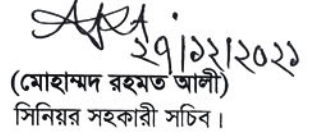 ২৭/১২/২০২১
(মোহাম্মদ রহমত আলী)
সিনিয়র সহকারী সচিব।